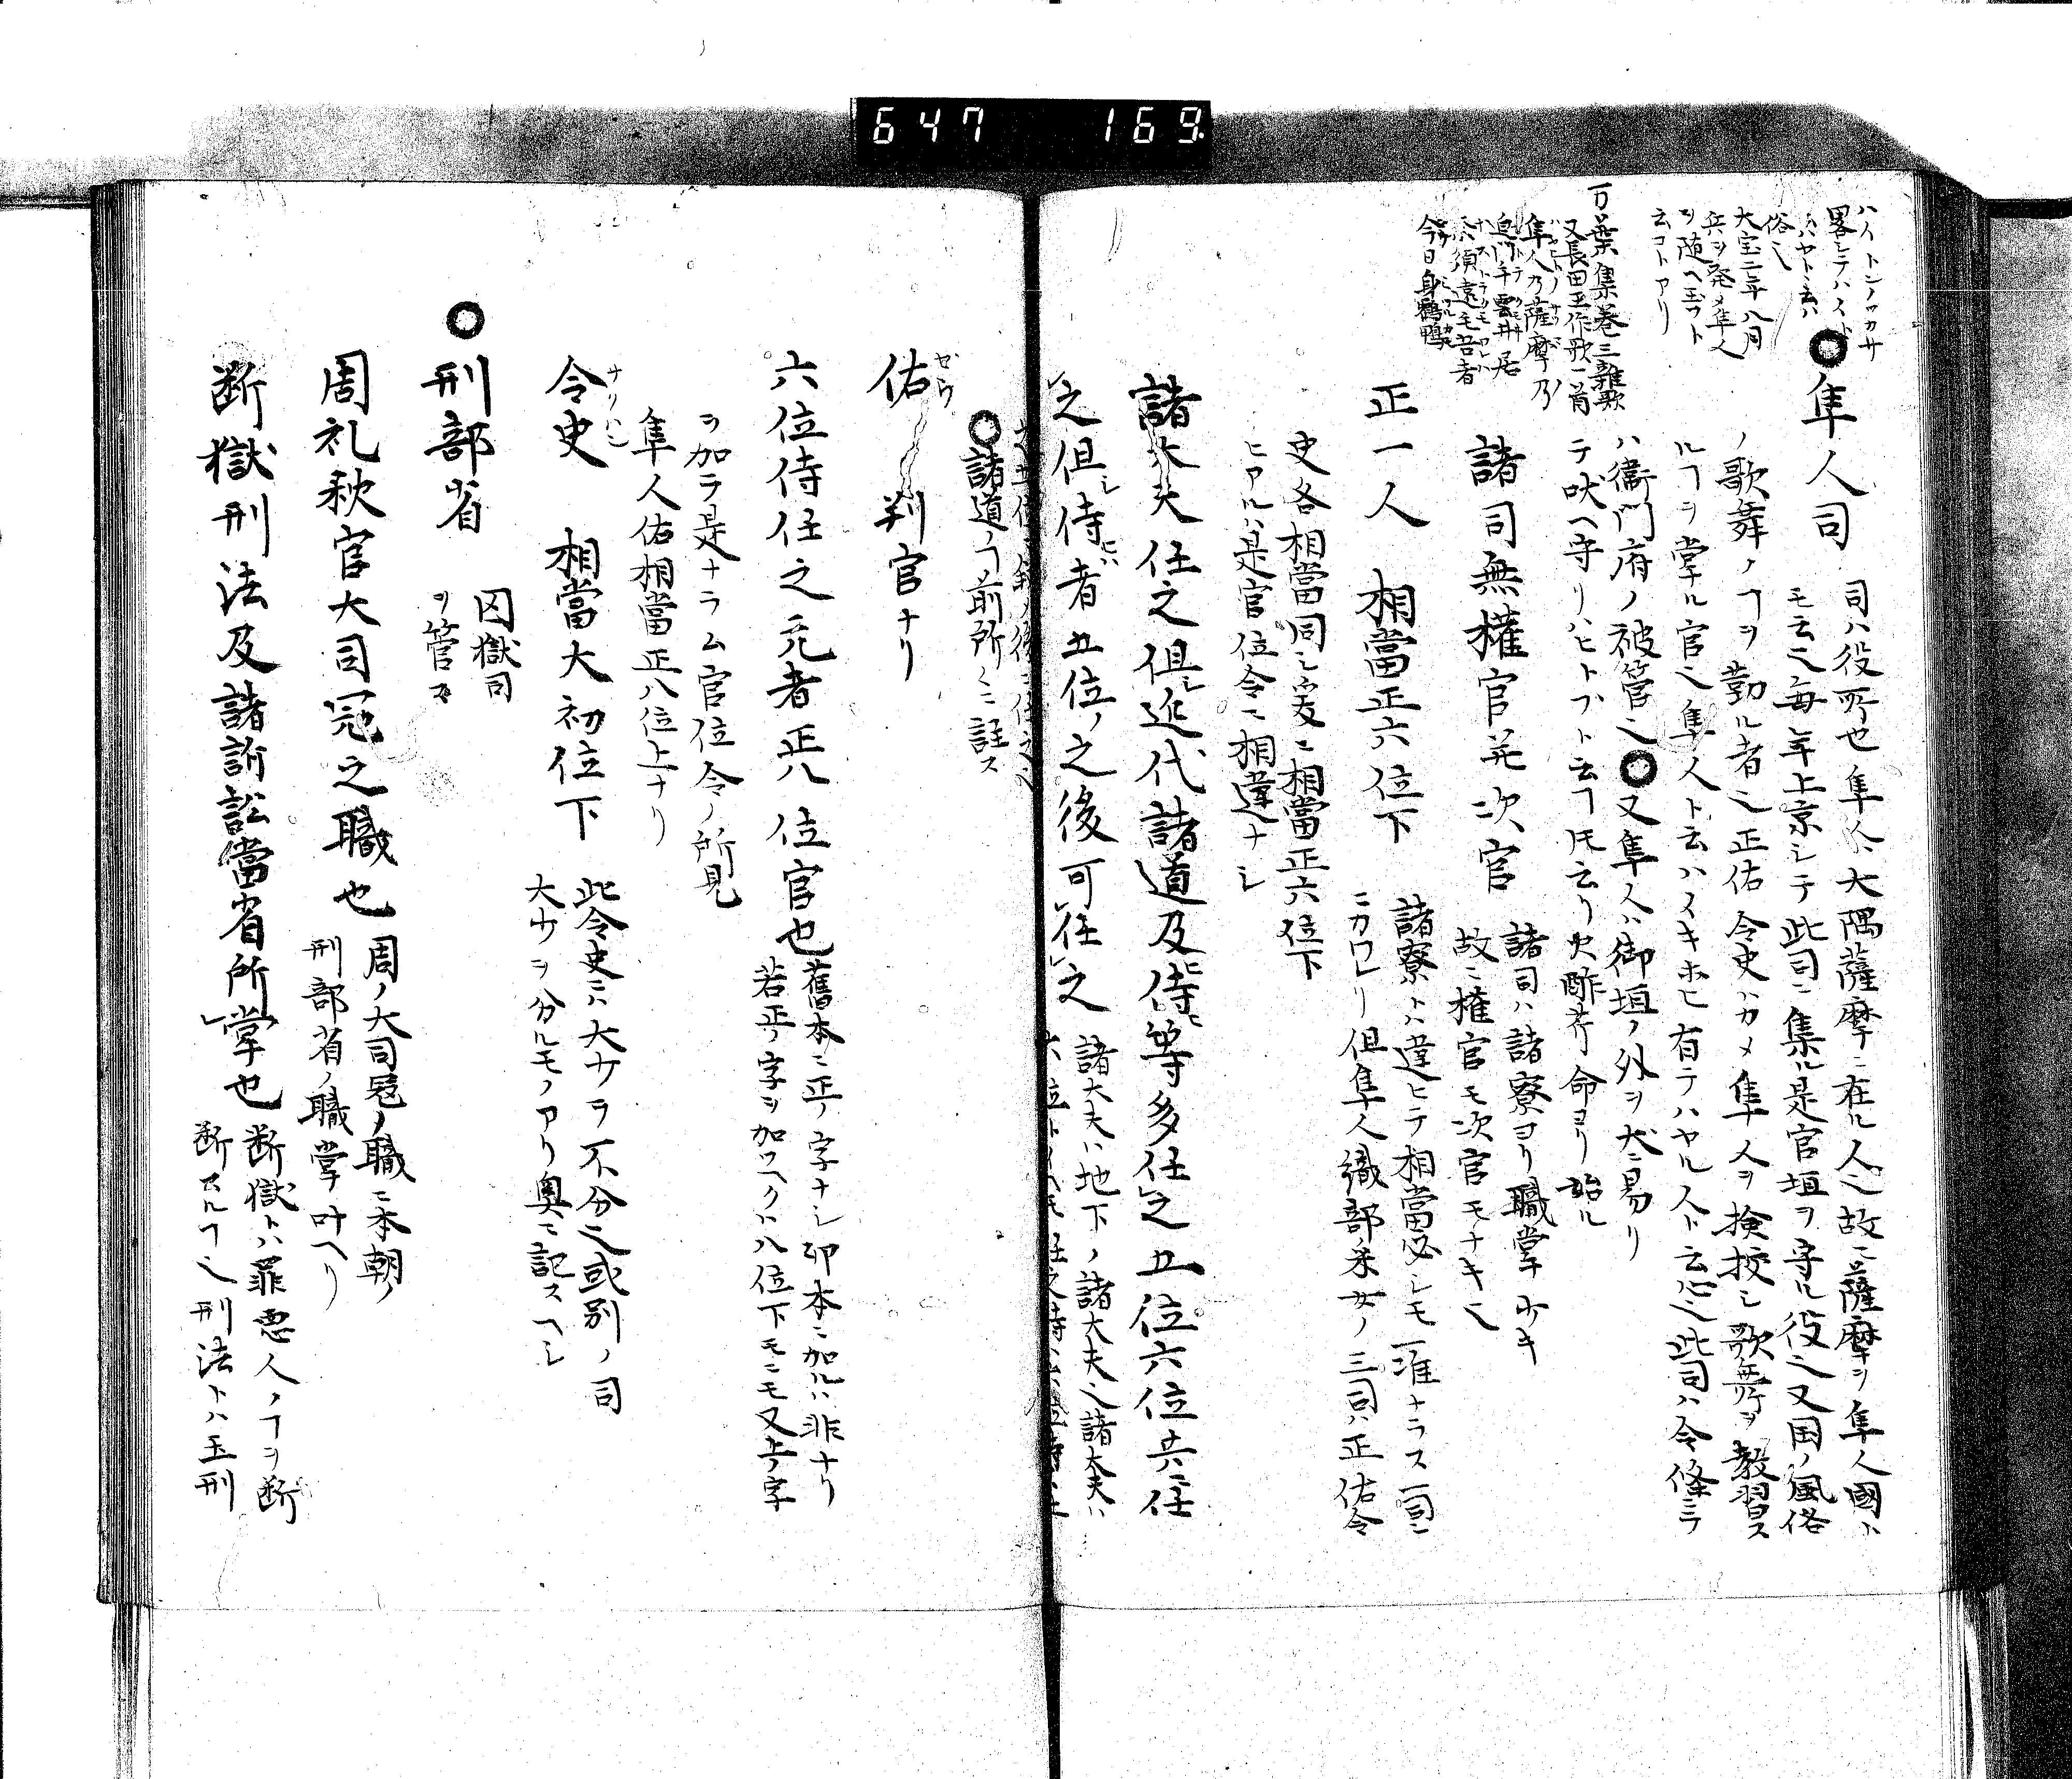 647 169
ハイトンノツカサ
畧シテハスト
ハヤト云ハ
俗也
大宝二年八月
兵ヲ発メ隼人
ヲ随ヘ玉フト
云コトアリ
万葉集巻三雑歌
又長田王作歌一首
隼人乃薩摩乃
迫門乎雲井
須遠毛吾者
今日見鶴鴨
隼人司
司ハ役所也隼人ハ大隅薩摩ニ在ル人也故ニ薩摩ヲ隼人國ト
モ云也毎年上京シテ此司ニ集ル是官垣ヲ守ル役也又国ノ風俗
ノ歌舞ノヿヲ勤ル者也正佑令史ハカメ隼人ヲ検校シ歌舞ヲ教習ス
ルヿヲ掌ル官也隼人ト云ハスキホヒ有テハヤル人ト云心也此司ハ令條ニテ
ハ衞門府ノ被管也又隼人ハ御垣ノ外ヲ犬ニ易リ
テ吠ヘ守リハヒトブト云フ𪜈云リ火酢芹命ヨリ始ル
諸司無權官并次官
諸司ハ諸寮ヨリ職掌少キ
故ニ權官モ次官モナキ也
正一人 相當正六位下
諸寮トハ違ヒテ相當必シモ一准ナラス一司ニ
ニカワレリ但隼人織部采女ノ三司ハ正佑令
史各相當同シ爰ニ相當正六位下
ヒアルハ是官位令ニ相違ナシ
諸大夫任之但シ近代諸道及侍等多任之五位六位共ニ任
之但シ侍者五位ノ之後可任之
諸大夫ハ地下ノ諸大夫也諸大夫ハ
諸道ノヿ前所々ニ註ス
佑 判官ナリ
ゼウ
六位侍任之元者正八位官也
舊本ニ正ノ字ナシ卯本ニ加ルハ非ナリ
若正ノ字ヲ加ヘクハ八位下モニモ又上ノ字
ヲ加テ是ナラム官位令ノ所見
隼人佑相當正八位上ナリ
令史 相當大初位下
此令史ニハ大少ヲ不分也或別ノ司
大少ヲ分ルモノアリ奥ニ記スヘシ
刑部省
囚獄司
ヲ管ス
周礼秋官大司冦之職也
周ノ大司冦ノ職ニ本朝ノ
刑部省ノ職掌叶ヘリ
断獄刑法及諸訴訟當省所掌也
断獄トハ罪悪人ノヿヲ断
断スルヿ也刑法トハ五刑